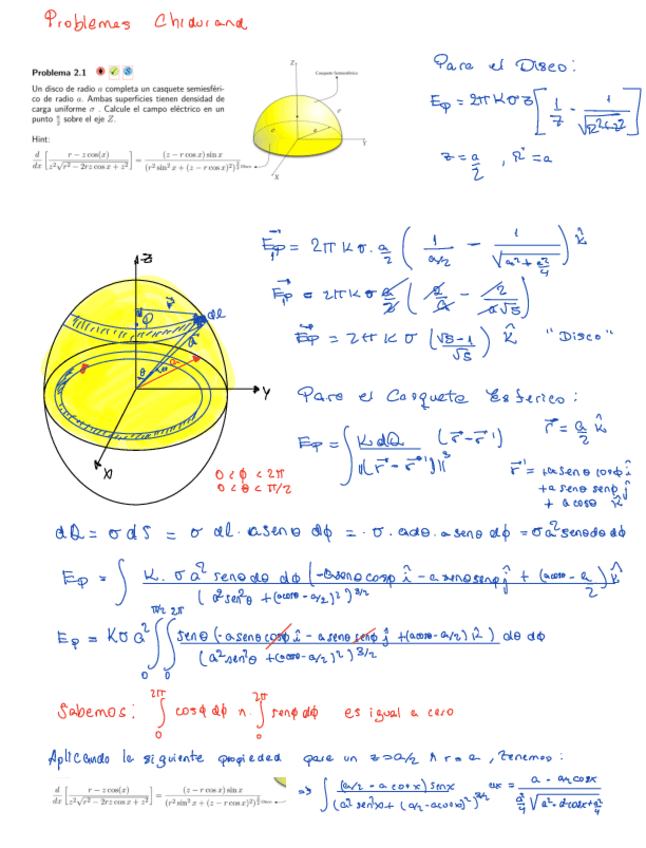 Problemes Chidurand
Problema 2.1
Un disco de radio a completa un casquete semiesféri-
co de radio a. Ambas superficies tienen densidad de
carga uniforme σ . Calcule el campo eléctrico en un
punto a/2 sobre el eje Z.
Hint:
d/dx [ (r − z cos(x)) / (z²√(r² − 2rz cos x + z²)) ] = (z − r cos x) sin x / (r² sin² x + (z − r cos x)²)^(3/2)
Z
Casquete Semiesférico
Y
X
Para el Disco:
Ep = 2π K σ z [ 1/z - 1/√(R²+z²) ]
z = a/2 , R = a
Ep = 2π K σ . a/2 ( 1/(a/2) - 1/√(a² + a²/4) ) k̂
Ep = 2π K σ a/2 ( 2/a - 2/(a√5) )
Ep = 2π K σ ( (√5 - 1)/√5 ) k̂ "Disco"
Z
P
dl
a
θ
Y
X
0 < ϕ < 2π
0 < θ < π/2
Para el Casquete Esferico:
Ep = ∫ K dQ (r - r') / |(r - r')|³
r = a/2 k̂
r' = +a senθ cosϕ î
+ a senθ senϕ ĵ
+ a cosθ k̂
dQ = σ dS = σ dl . a senθ dϕ = . σ . adθ . a senθ dϕ = σ a² senθ dθ dϕ
Ep = ∫ K . σ a² senθ dθ dϕ (-a senθ cosϕ î - a senθ senϕ ĵ + (a cosθ - a/2) k̂ / (a² sen²θ + (a cosθ - a/2)²)^3/2
Ep = K σ a² ∫₀^π/2 ∫₀^2π senθ (-a senθ cosϕ î - a senθ senϕ ĵ + (a cosθ - a/2) k̂) / (a² sen²θ + (a cosθ - a/2)²)^3/2 dθ dϕ
Sabemos: ∫₀^2π cosϕ dϕ ∧ ∫₀^2π senϕ dϕ es igual a cero
Aplicando la siguiente propiedad para un z = a/2 ∧ r = a, tenemos:
d/dx [ (r − z cos(x)) / (z²√(r² − 2rz cos x + z²)) ] = (z − r cos x) sin x / (r² sin² x + (z − r cos x)²)^(3/2)
⇒ ∫ (a/2 - a cosx) senx / (a² sen²x + (a/2 - a cosx)²)^3/2 dx = (a - a/2 cosx) / (a²/4 √(a² - a² cosx + a²/4))